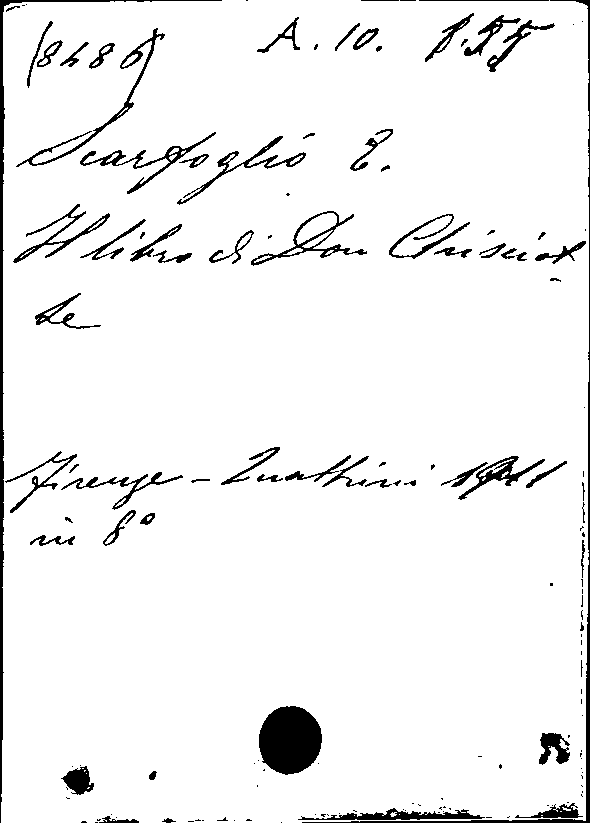 (8486) A. 10.
Scarfoglio E.
Il libro di Don Chisciot
te
Firenze - Quattrini 1911
in 8°